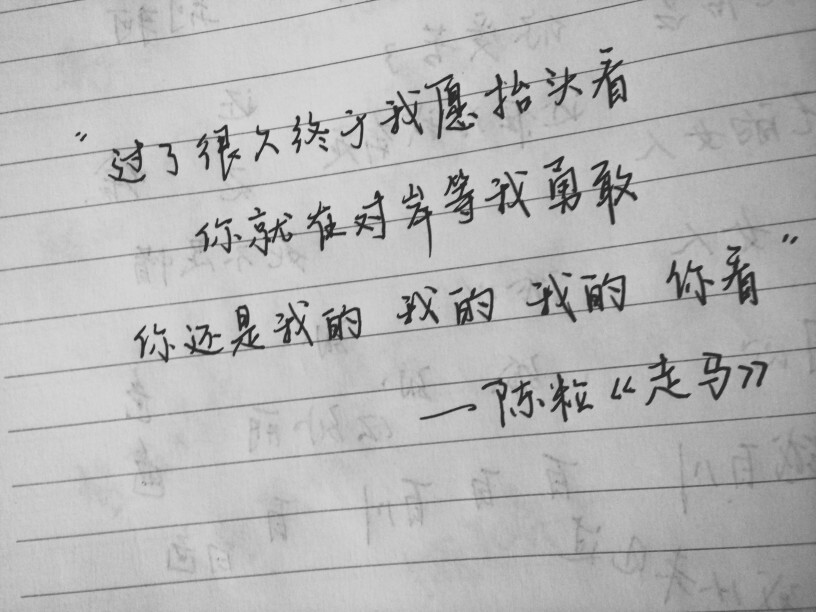 “过了很久终于我愿抬头看
你就在对岸等我勇敢
你还是我的 我的 我的 你看”
—陈粒《走马》